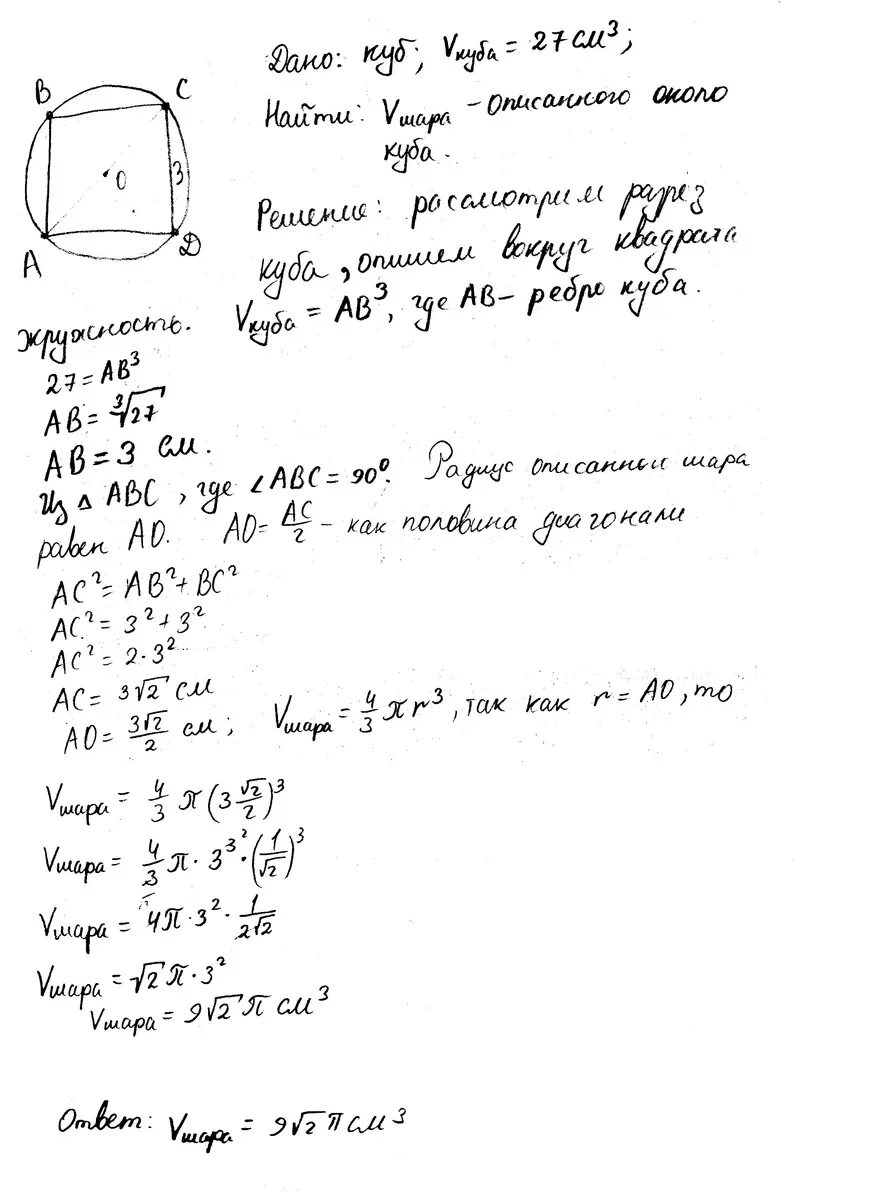 Дано: куб; Vкуба = 27 см³;
B C
Найти: Vшара - описанного около
куба.
O 3
A D
Решение: рассмотрим разрез
куба, опишем вокруг квадрата
окружность. Vкуба = AB³, где AB - ребро куба.
27 = AB³
AB = ∛27
AB = 3 см.
Из △ ABC, где ∠ABC = 90°. Радиус описанный шара
равен AO. AO = AC/2 - как половина диагонали
AC² = AB² + BC²
AC² = 3² + 3²
AC² = 2·3²
AC = 3√2 см
AO = 3√2/2 см; Vшара = 4/3 π r³, так как r = AO, то
Vшара = 4/3 π (3 √2/2)³
Vшара = 4/3 π · 3³ ² · (1/√2)³
Vшара = 4π · 3² · 1/2√2
Vшара = √2 π · 3²
Vшара = 9√2 π см³
Ответ: Vшара = 9√2 π см³